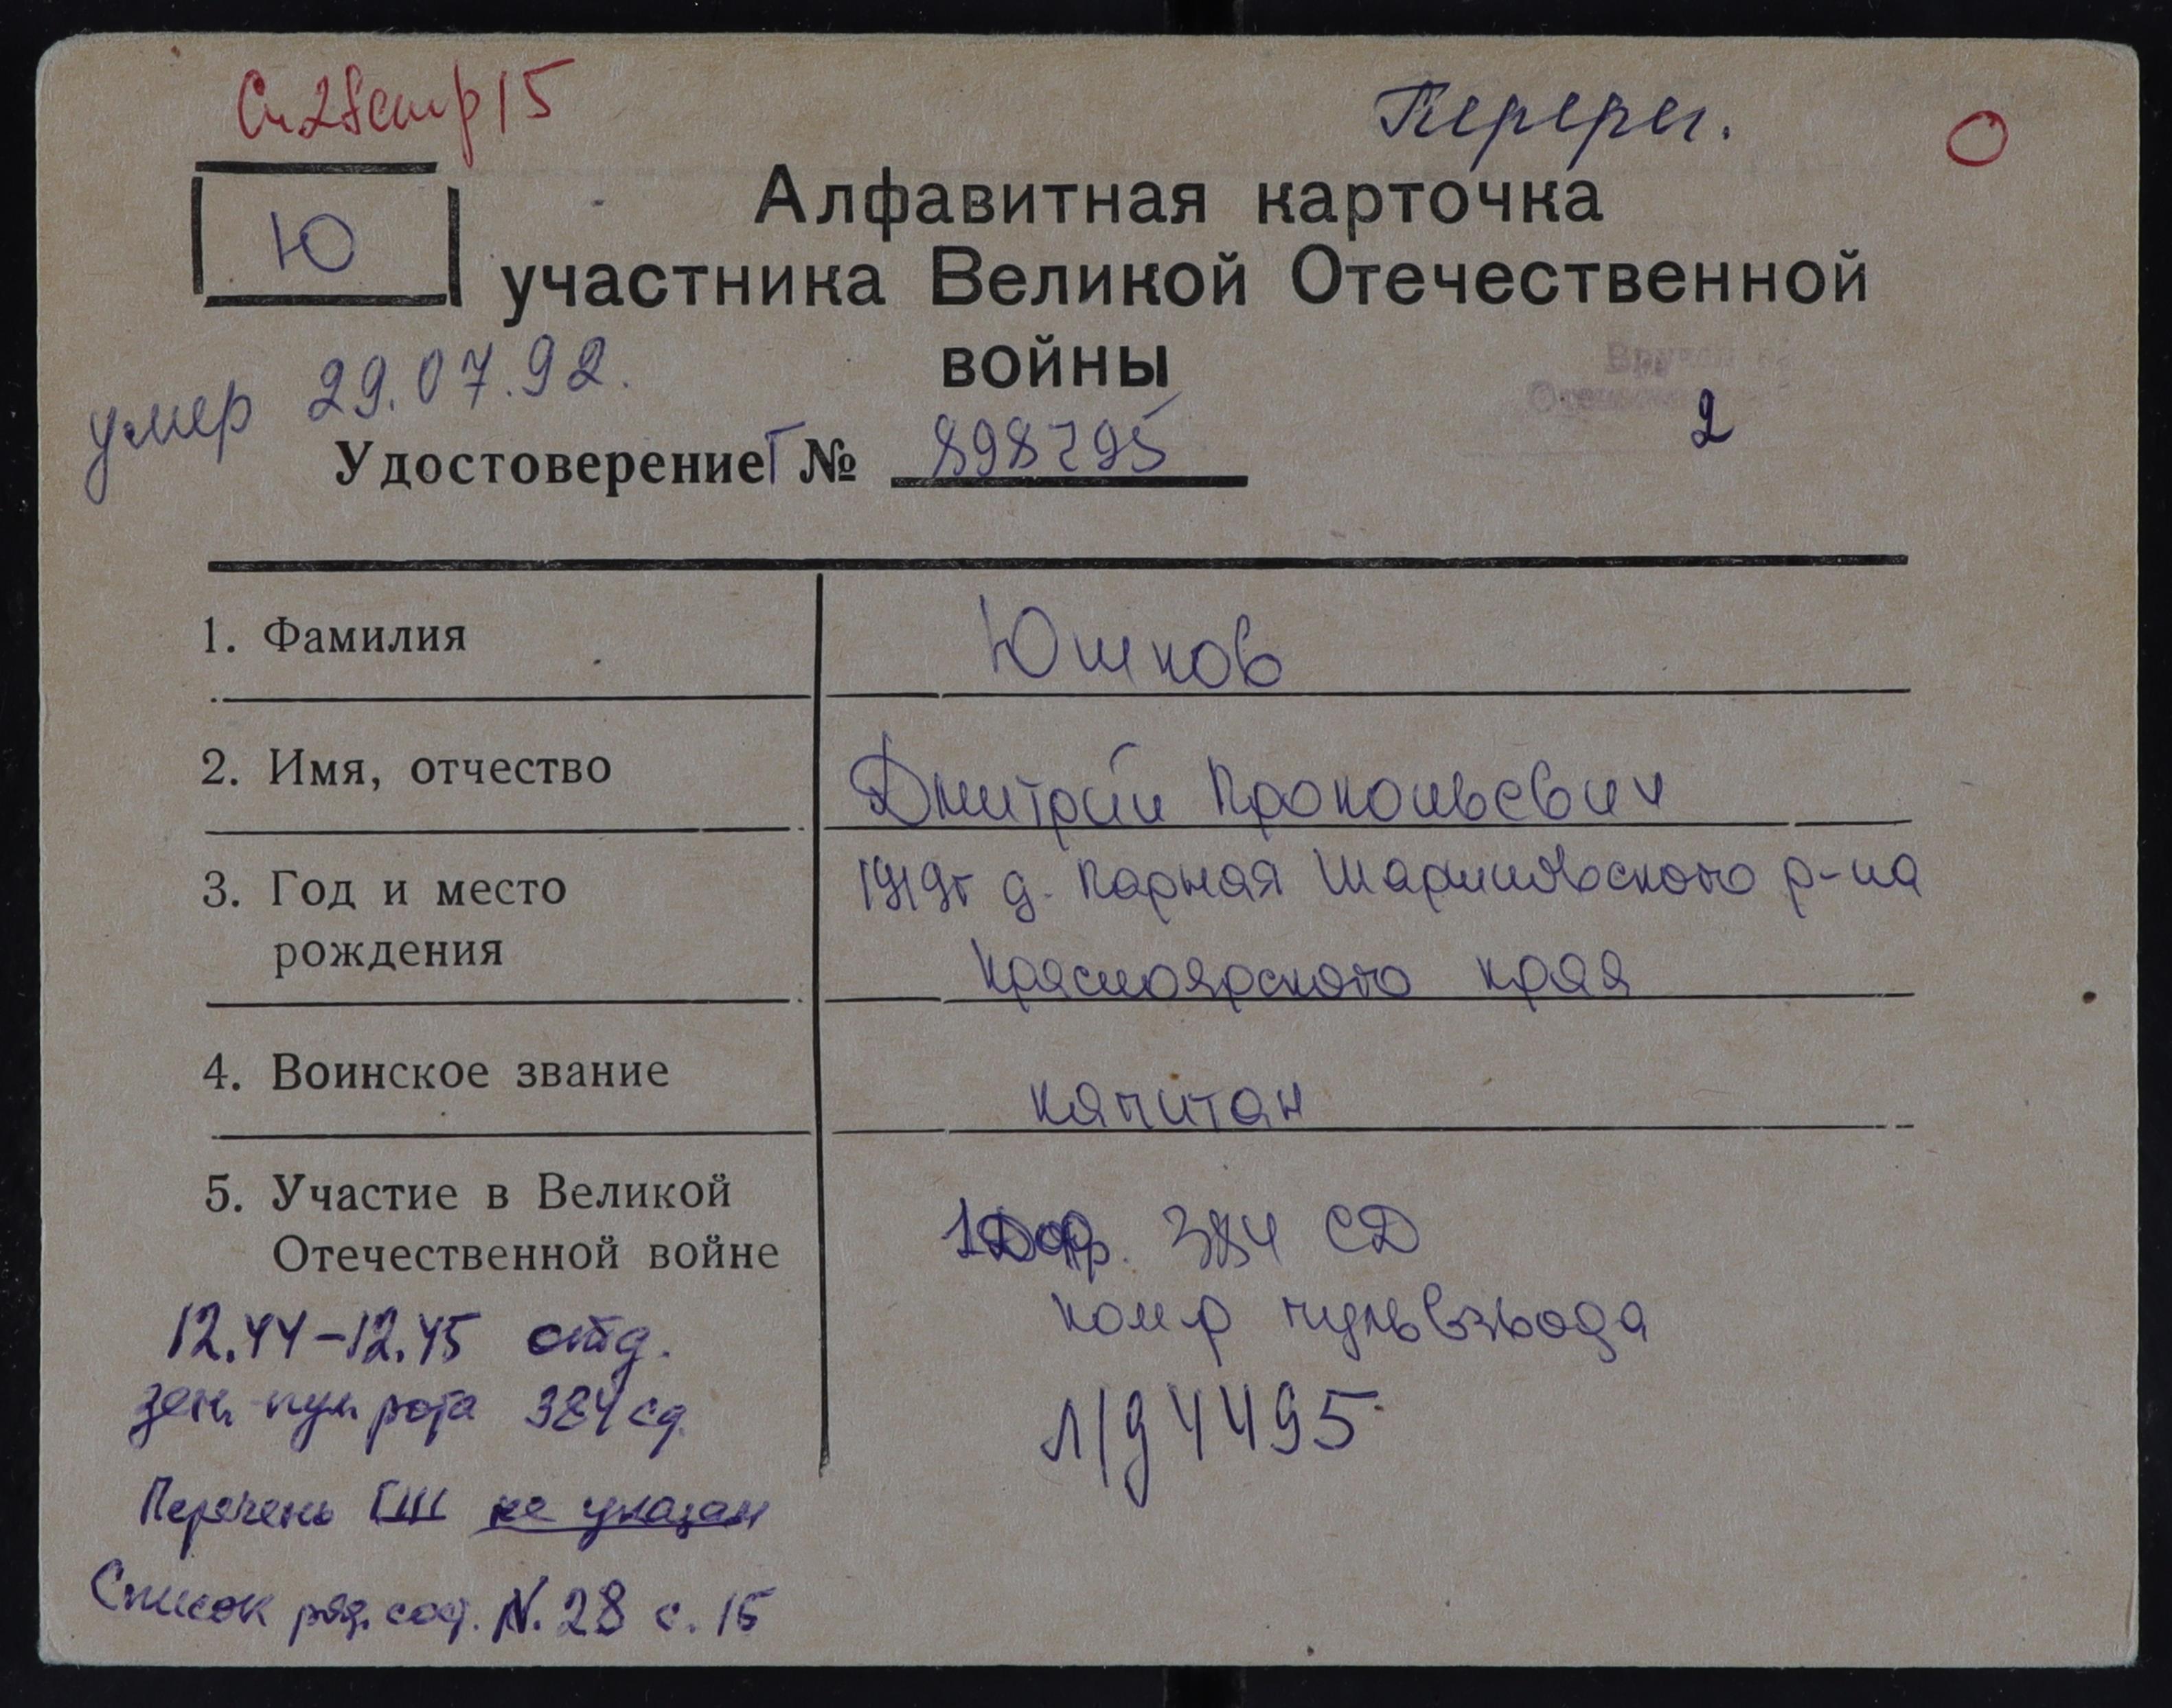 Сп 28 стр 15
Перерег.
О
Ю
Алфавитная карточка
участника Великой Отечественной
войны
умер 29.07.92.
Вручен
2
Удостоверение Г № 898295
1. Фамилия Юшков
2. Имя, отчество Дмитрий Прокопьевич
3. Год и место 1919г д. Парная Шарыповского р-на
рождения Красноярского края
4. Воинское звание капитан
5. Участие в Великой
Отечественной войне
384 СД
ком-р пульвзвода
л/д 4495
12.44-12.45 отд.
зен. пул рота 384 сд.
Перечень ГШ не указан
Список ряд. сос. N. 28 с. 15